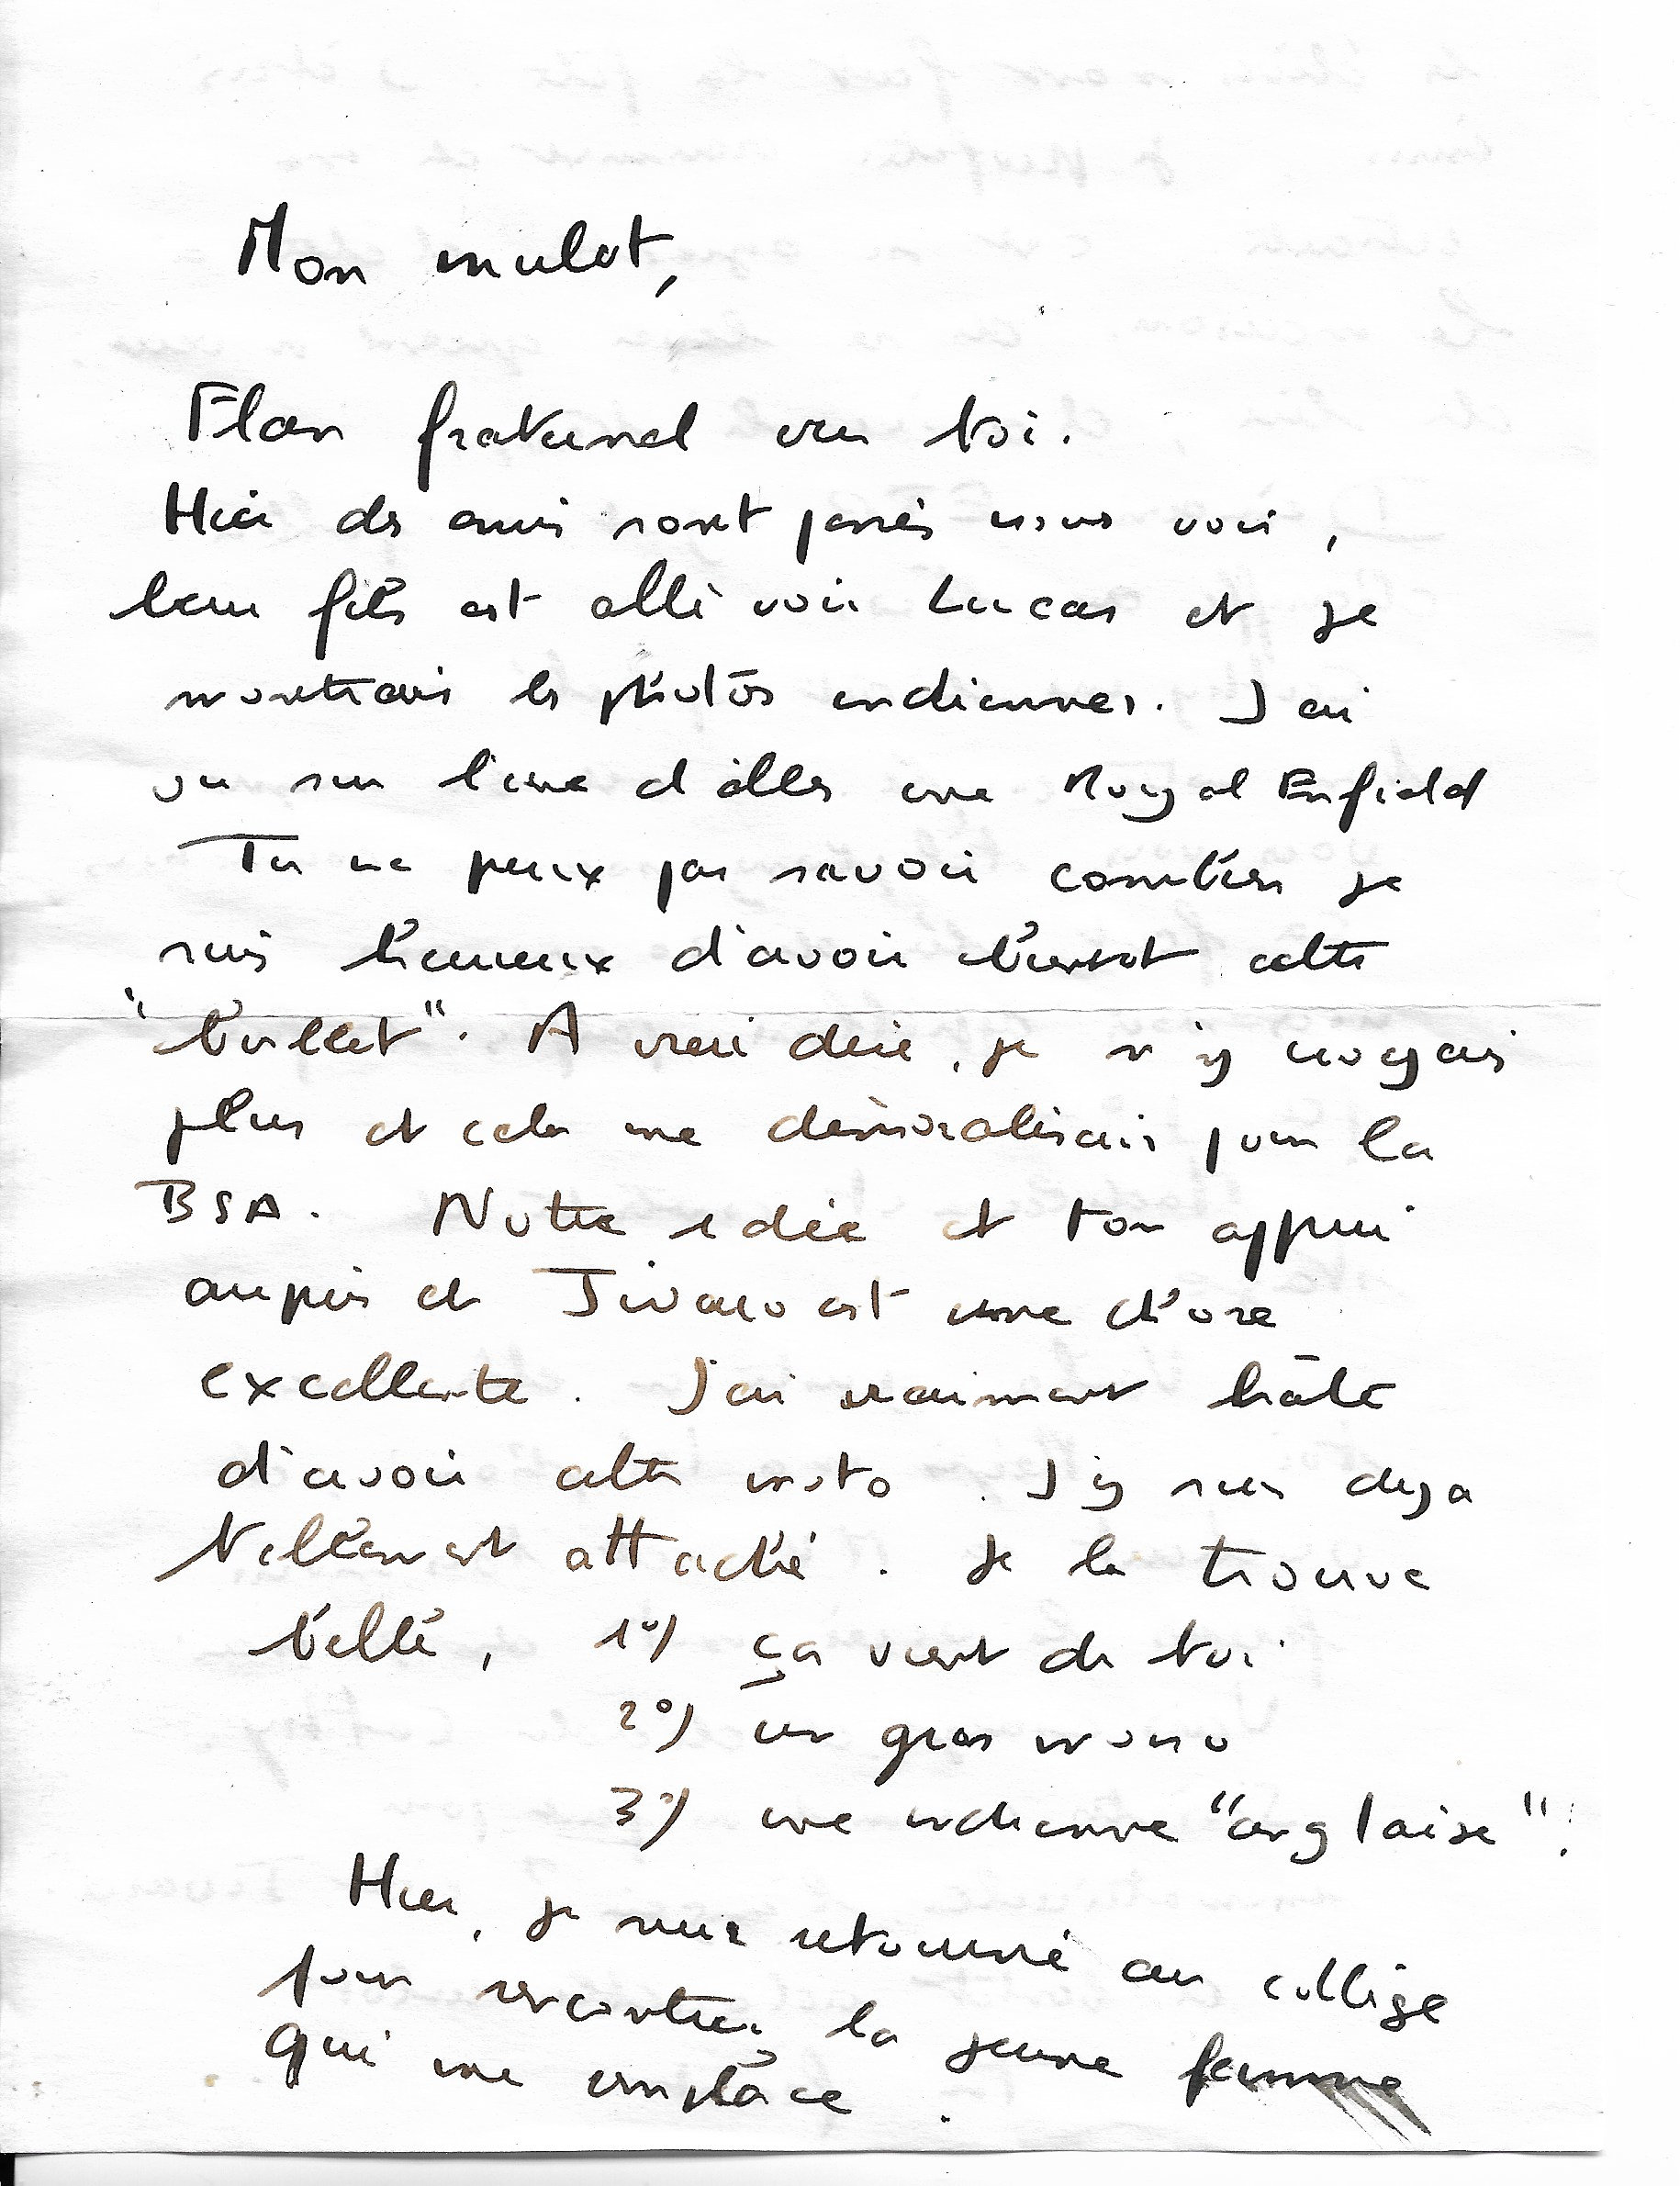 Mon mulot,
Elan fraternel vers toi.
Hier des amis sont passés nous voir,
leur fils est allé voir Lucas et je
montrais les photos indiennes. J'ai
vu sur l'une d'elles une Royal Enfield
Tu ne peux pas savoir combien je
suis heureux d'avoir bientôt cette
"bullet". A vrai dire, je n'y croyais
plus et cela me démoralisais pour la
BSA. Notre idée et ton appui
auprès de Jivaro est une chose
excellente. J'ai vraiment hâte
d'avoir cette moto. J'y suis deja
tellement attaché. Je la trouve
belle, 1°) ça vient de toi
2°) un gros mono
3°) une indienne "anglaise".
Hier, je suis retourné au collège
pour rencontrer la jeune femme
qui me remplace.